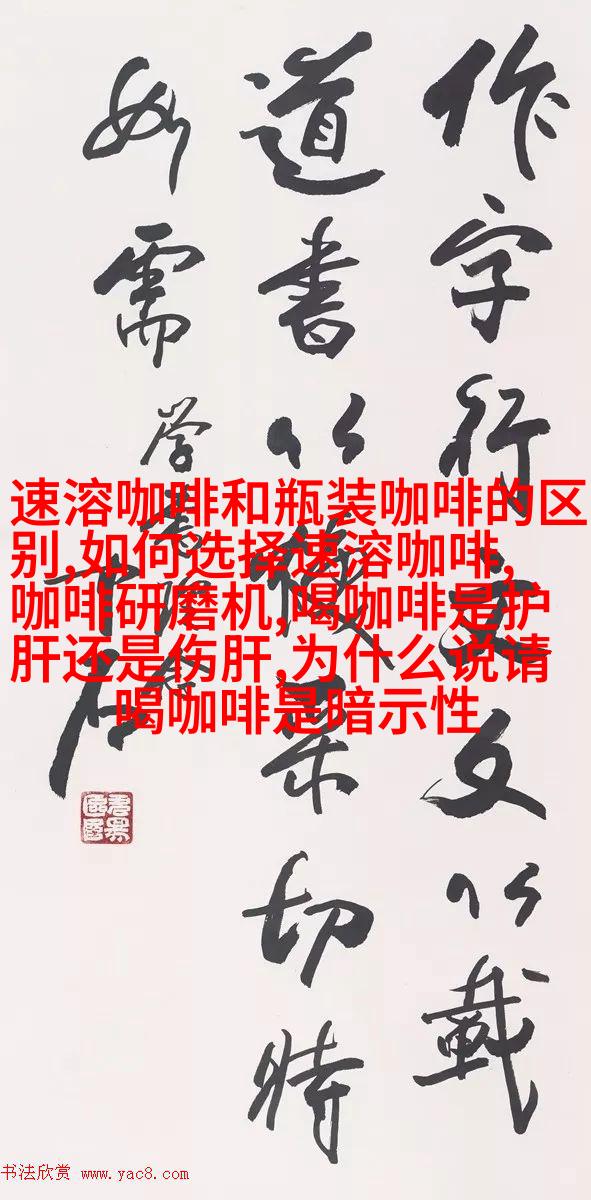 速溶咖啡和瓶装咖啡的区
别,如何选择速溶咖啡,
咖啡研磨机,喝咖啡是护
肝还是伤肝,为什么说请
喝咖啡是暗示性
作字行文文以载
道书以采切时
如需
学书
书法欣赏 www.yac8.com